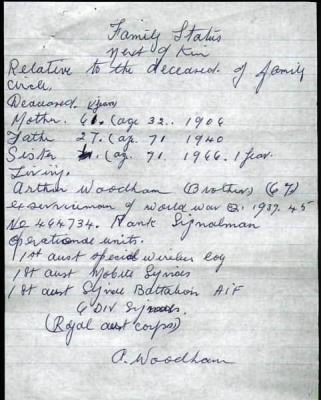 Family Status
Next of Kin
Relative to the deceased of family
circle.
Deceased. (years)
Mother. (age 32. 1906
Father 27. (age. 71 1940
Sister (ag. 71. 1966. 1 year.
Living.
Arthur Woodham (Brother) (67)
exserviceman of world war 2. 1939. 45
No 464734. Rank Signalman
Operationde units.
1st aust special wireless Coy
1st aust Mobile Signals
1st aust Signal Battalion AIF
6 DIV Signals.
(Royal aust corps)
A. Woodham